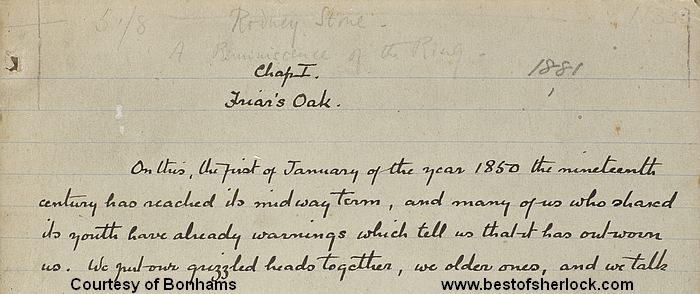 5/8 Rodney Stone.
A Reminiscence of the Ring.
Chap I. 1881
Friar's Oak.
On this, the first of January of the year 1850 the nineteenth
century has reached its midway term, and many of us who shared
its youth have already warnings which tell us that it has outworn
us. We put our grizzled heads together, we older ones, and we talk
Courtesy of Bonhams www.bestofsherlock.com